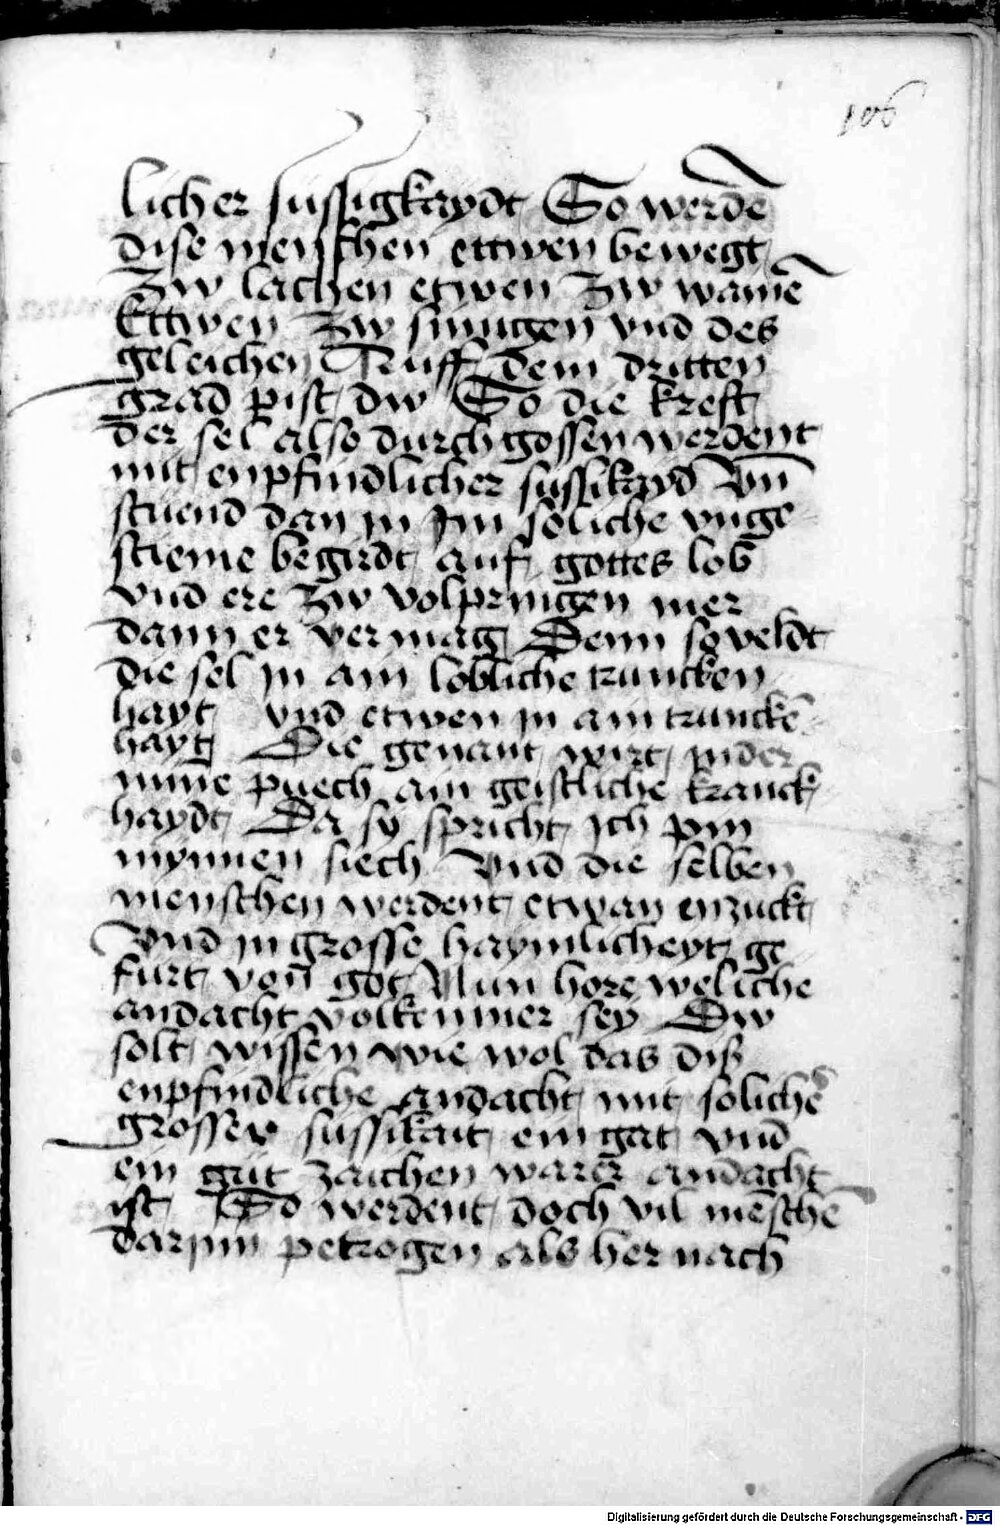 106
licher sussigkaydt So werdē
dise menschen ettwen bewegt
Zw lachen etwen Zw wainē
Ettwen Zw singen vnd des
geleichen Auff dem dritten
grad pist dw So die kreft
der sel also durchgossen werdent
mit enpfindlicher sussikayd Vn̄
stuend dan in Im soliche vnge
stieme begirdt auf gottes lob
vnd ere zw volpringen mer
dann er vermag Denn so veldt
die sel in ain lobliche truncken
hayt vnd etwen in ain trunckē
hayt Die genant wirt in der
mine puech ain geistliche kranck
haydt Da sy spricht ich pin
mynnen siech Vnd die selben
menschen werdent etwan enzuckt
Vnd in grosse haymlicheyt ge
furt von got Nun hore weliche
andacht volkenmer sey Dw
solt wissen wie wol das diß
enpfindliche andacht mit solichē
grosser sussikait ein gat vnd
ein gut zaichen warer andacht
ist So werdent doch vil mēschē
darjnn petrogen als her nach
Digitalisierung gefördert durch die Deutsche Forschungsgemeinschaft - DFG